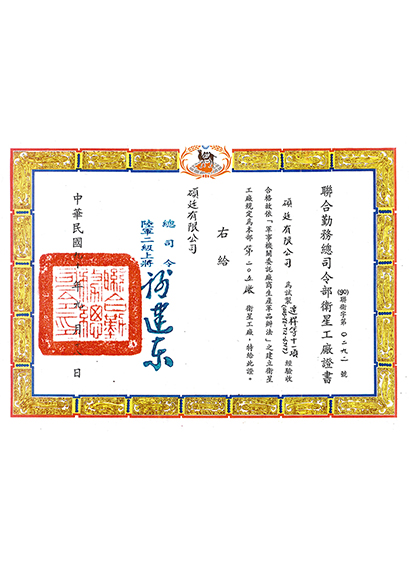 (90)聯衛字第〇二九二號
聯合勤務總司令部衛星工廠證書
碩廷有限公司為試製等十一項經驗收
合格故依「軍事機關委託廠商生產軍品辦法」之建立衛星
工廠規定為本部第二〇五廠衛星工廠，特給此證。
右給
碩廷有限公司
總司令
陸軍二級上將
謝建東
中華民國年九月日